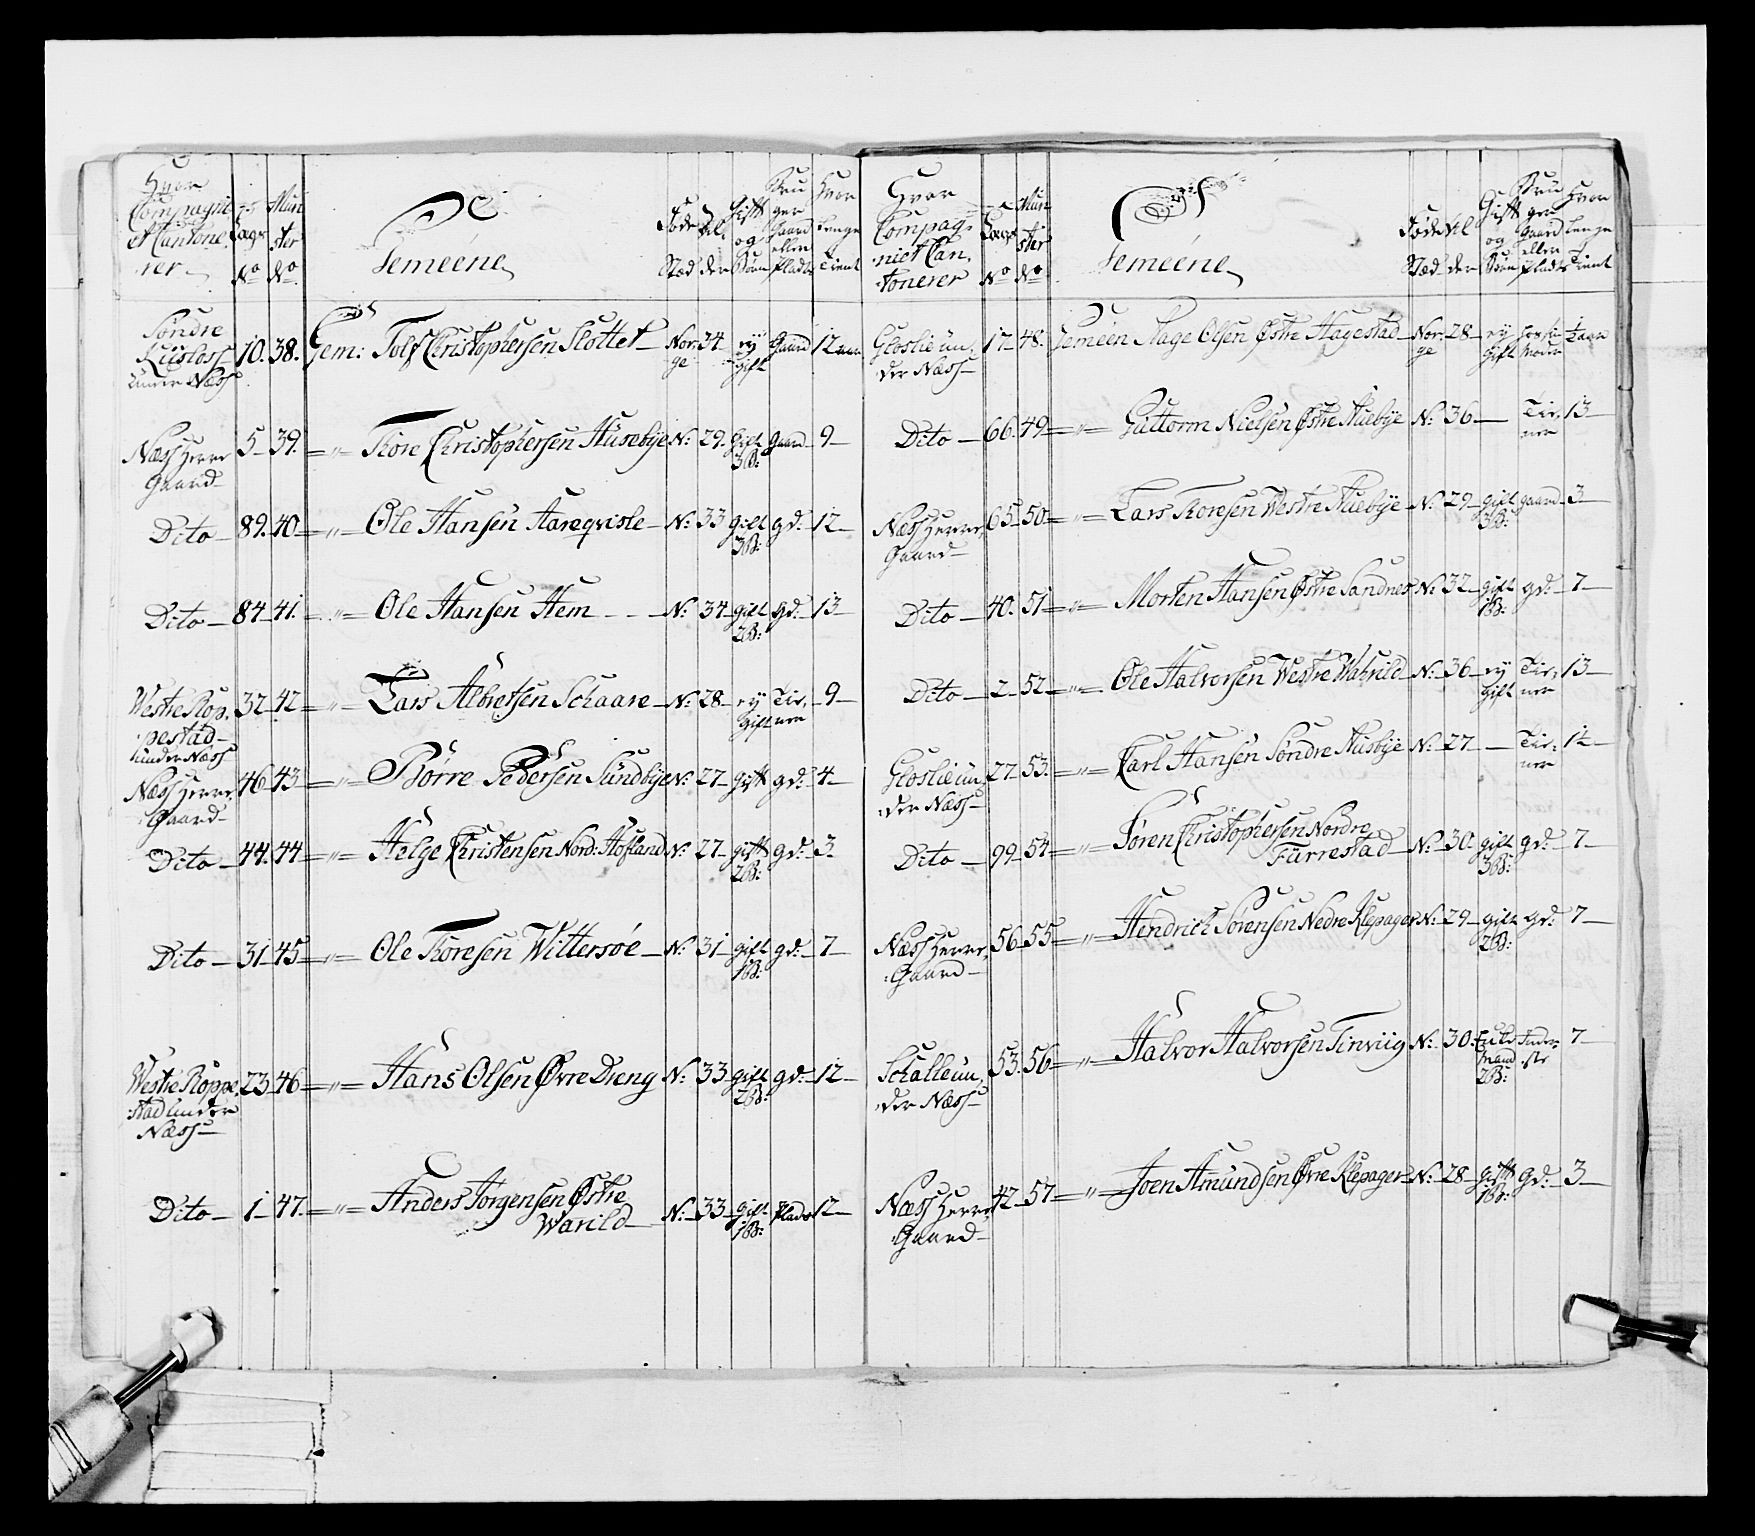 Hvor
Compagnie
et Cantone
rer
Lægs
No
Mün
ster
No
Gemeene
Føde
Stæd
Al
der
Gift
og
Børn
Bru
ger
Gaard
eller
Plads
Hvor
lenge
tient
Søndre
under Næss
10. 38. Gem: Tolf Christophersen Slottet Nor
ge 34 ey
gift Gaard 12 aar
Næss Herre
Gaard 5 39. Tore Christophersen Husebye N: 29. gift
3B: Gaard 9
Dito 89. 40 Ole Hansen Aareqvisle N: 33 gift
3B: gd: 12
Dito 84 41. Ole Hansen Hem N: 34 gift
2B: gd: 13
Westre Rop
pestad
under Næss 32 42 Lars Albretsen Schaare N: 28 ey
gift Tie
ner 9
Næss Herre
Gaard 46 43 Børre Pedersen Sundbye N: 27 gift gd: 4
Dito 44. 44 Helge Christensen Nord: Hofland N: 27 gift
2B: gd: 3
Dito 31 45 Ole Toresen Wittersøe N: 31 gift
1B: gd: 7
Westre Roppe
stad under
Næss 23 46 Hans Olsen Øvre Dreng N: 33 gift
2B: gd: 12
Dito 1 47. Anders Jorgensen Østre
Warild N: 33 gift
1B: Plads 12
Hvor
Compag
niet Can
tonerer
Lægs
No
Mün
ster
No
Gemeene
Føde
Stæd
Al
der
Gift
og
Børn
Bru
ger
Gaard
eller
Plads
Hvor
lenge
tient
Gloslie un
der Næss 17 48. Gemeen Aage Olsen Østre Hagestad Nor
ge 28 ey
gift
Moder
Dito 66. 49 Guttorm Nielsen Østre Auebye N: 36 Tie
ner 13
Næss Herre
Gaard 65 50 Lars Toresen Westre Auebye N: 29 gift
3B: gaard 3
Dito 40. 51 Morten Hansen Østre Sandnes N: 32 gift
1B: gd: 7
Dito 2 52 Ole Halvorsen Westre Wahrild N: 36 ey
gift Tie
ner 13
Gloslie un
der Næss 27 53. Carl Hansen Søndre Ausbye N: 27 Tie
ner 12
Dito 99 54 Søren Christophersen Nordre
Furrestad N: 30 gift
3B: gd: 7
Næss Herre
Gaard 56 55 Hendrich Sørensen Nedre Klepager N: 29 gift
2B: gd: 7
Schalle un
der Næss 53. 56 Halvor Halvorsen Tinviig N: 30. Enke
Mand
2B: Inder
ste 7
Næss Herre
Gaard 42 57 Joen Amundsen Øvre Klepager N: 28 gift
1B: gd: 3